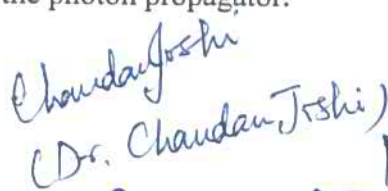 the photon propagator.
Chandan Joshi
(Dr. Chandan Joshi)